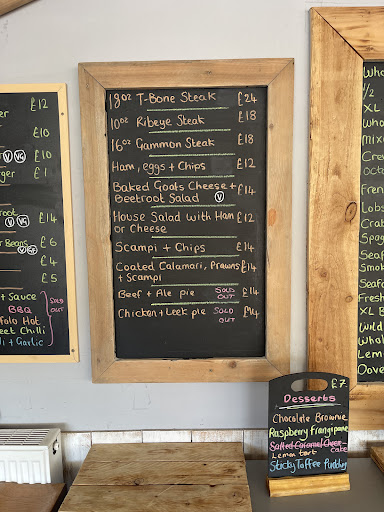 er £12
£10
V VG £10
rger £1
root V VG £14
r Beans V VG £6
£4
£5
+ Sauce
BBQ
falo Hot
eet Chilli
li + Garlic
SOLD OUT
18oz T-Bone Steak £24
10oz Ribeye Steak £18
16oz Gammon Steak £18
Ham, eggs + Chips £12
Baked Goats Cheese + £14
Beetroot Salad V
House Salad with Ham £12
or Cheese
Scampi + Chips £14
Coated Calamari, Prawns £14
+ Scampi
Beef + Ale pie SOLD OUT £14
Chicken + Leek pie SOLD OUT £14
Who
1/2
XL
Who
mixe
Cre
Octo
Fren
Lobs
Crab
Spag
Seaf
Smok
Seafo
Fresh
XL B
Wild
Whol
Lem
Dove
£7
Desserts
Chocolate Brownie
Raspberry frangipane
Salted Caramel Cheese Cake
Lemon tart
Sticky Toffee Pudding